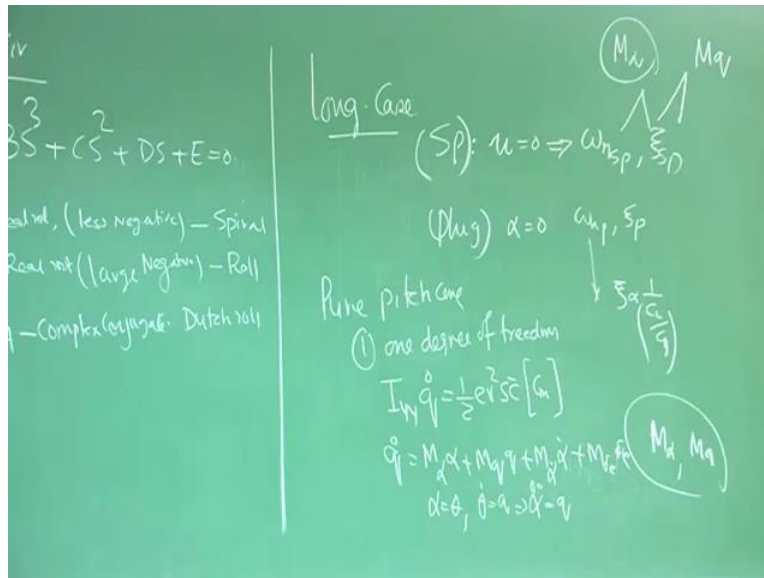 iv
BS³ + CS² + DS + E = 0
root, (less Negative) – Spiral
Real root (large Negative) – Roll
– Complex Conjugate. Dutch roll
Long. Case
Mα, Mq
(SP): u=0 ⇒ ωnSP, ξSP
(Phug) α=0 ωnp, ξp
ξ α 1/(CL/CD)
Pure pitch case
① one degree of freedom
Iyy q̇ = ½ ρv²Sc̄ [Cm]
q̇ = Mα α + Mq q + Mα̇ α̇ + Mδe δe
α=θ, θ̇=q ⇒ α̇=q
Mα, Mq